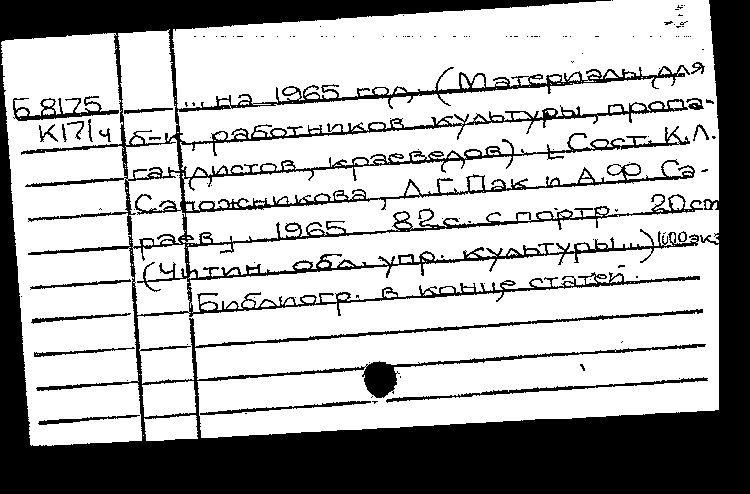 Б 8175 ... на 1965 год. (Материалы для
К171ч б-к, работников культуры, пропа-
гандистов, краеведов). [Сост. К.Л.
Сапожникова, Л.Г. Пак и А.Ф. Са-
раев]. 1965 82с. с портр. 20см
(Читин. обл. упр. культуры...) 1000экз
Библиогр. в конце статей.